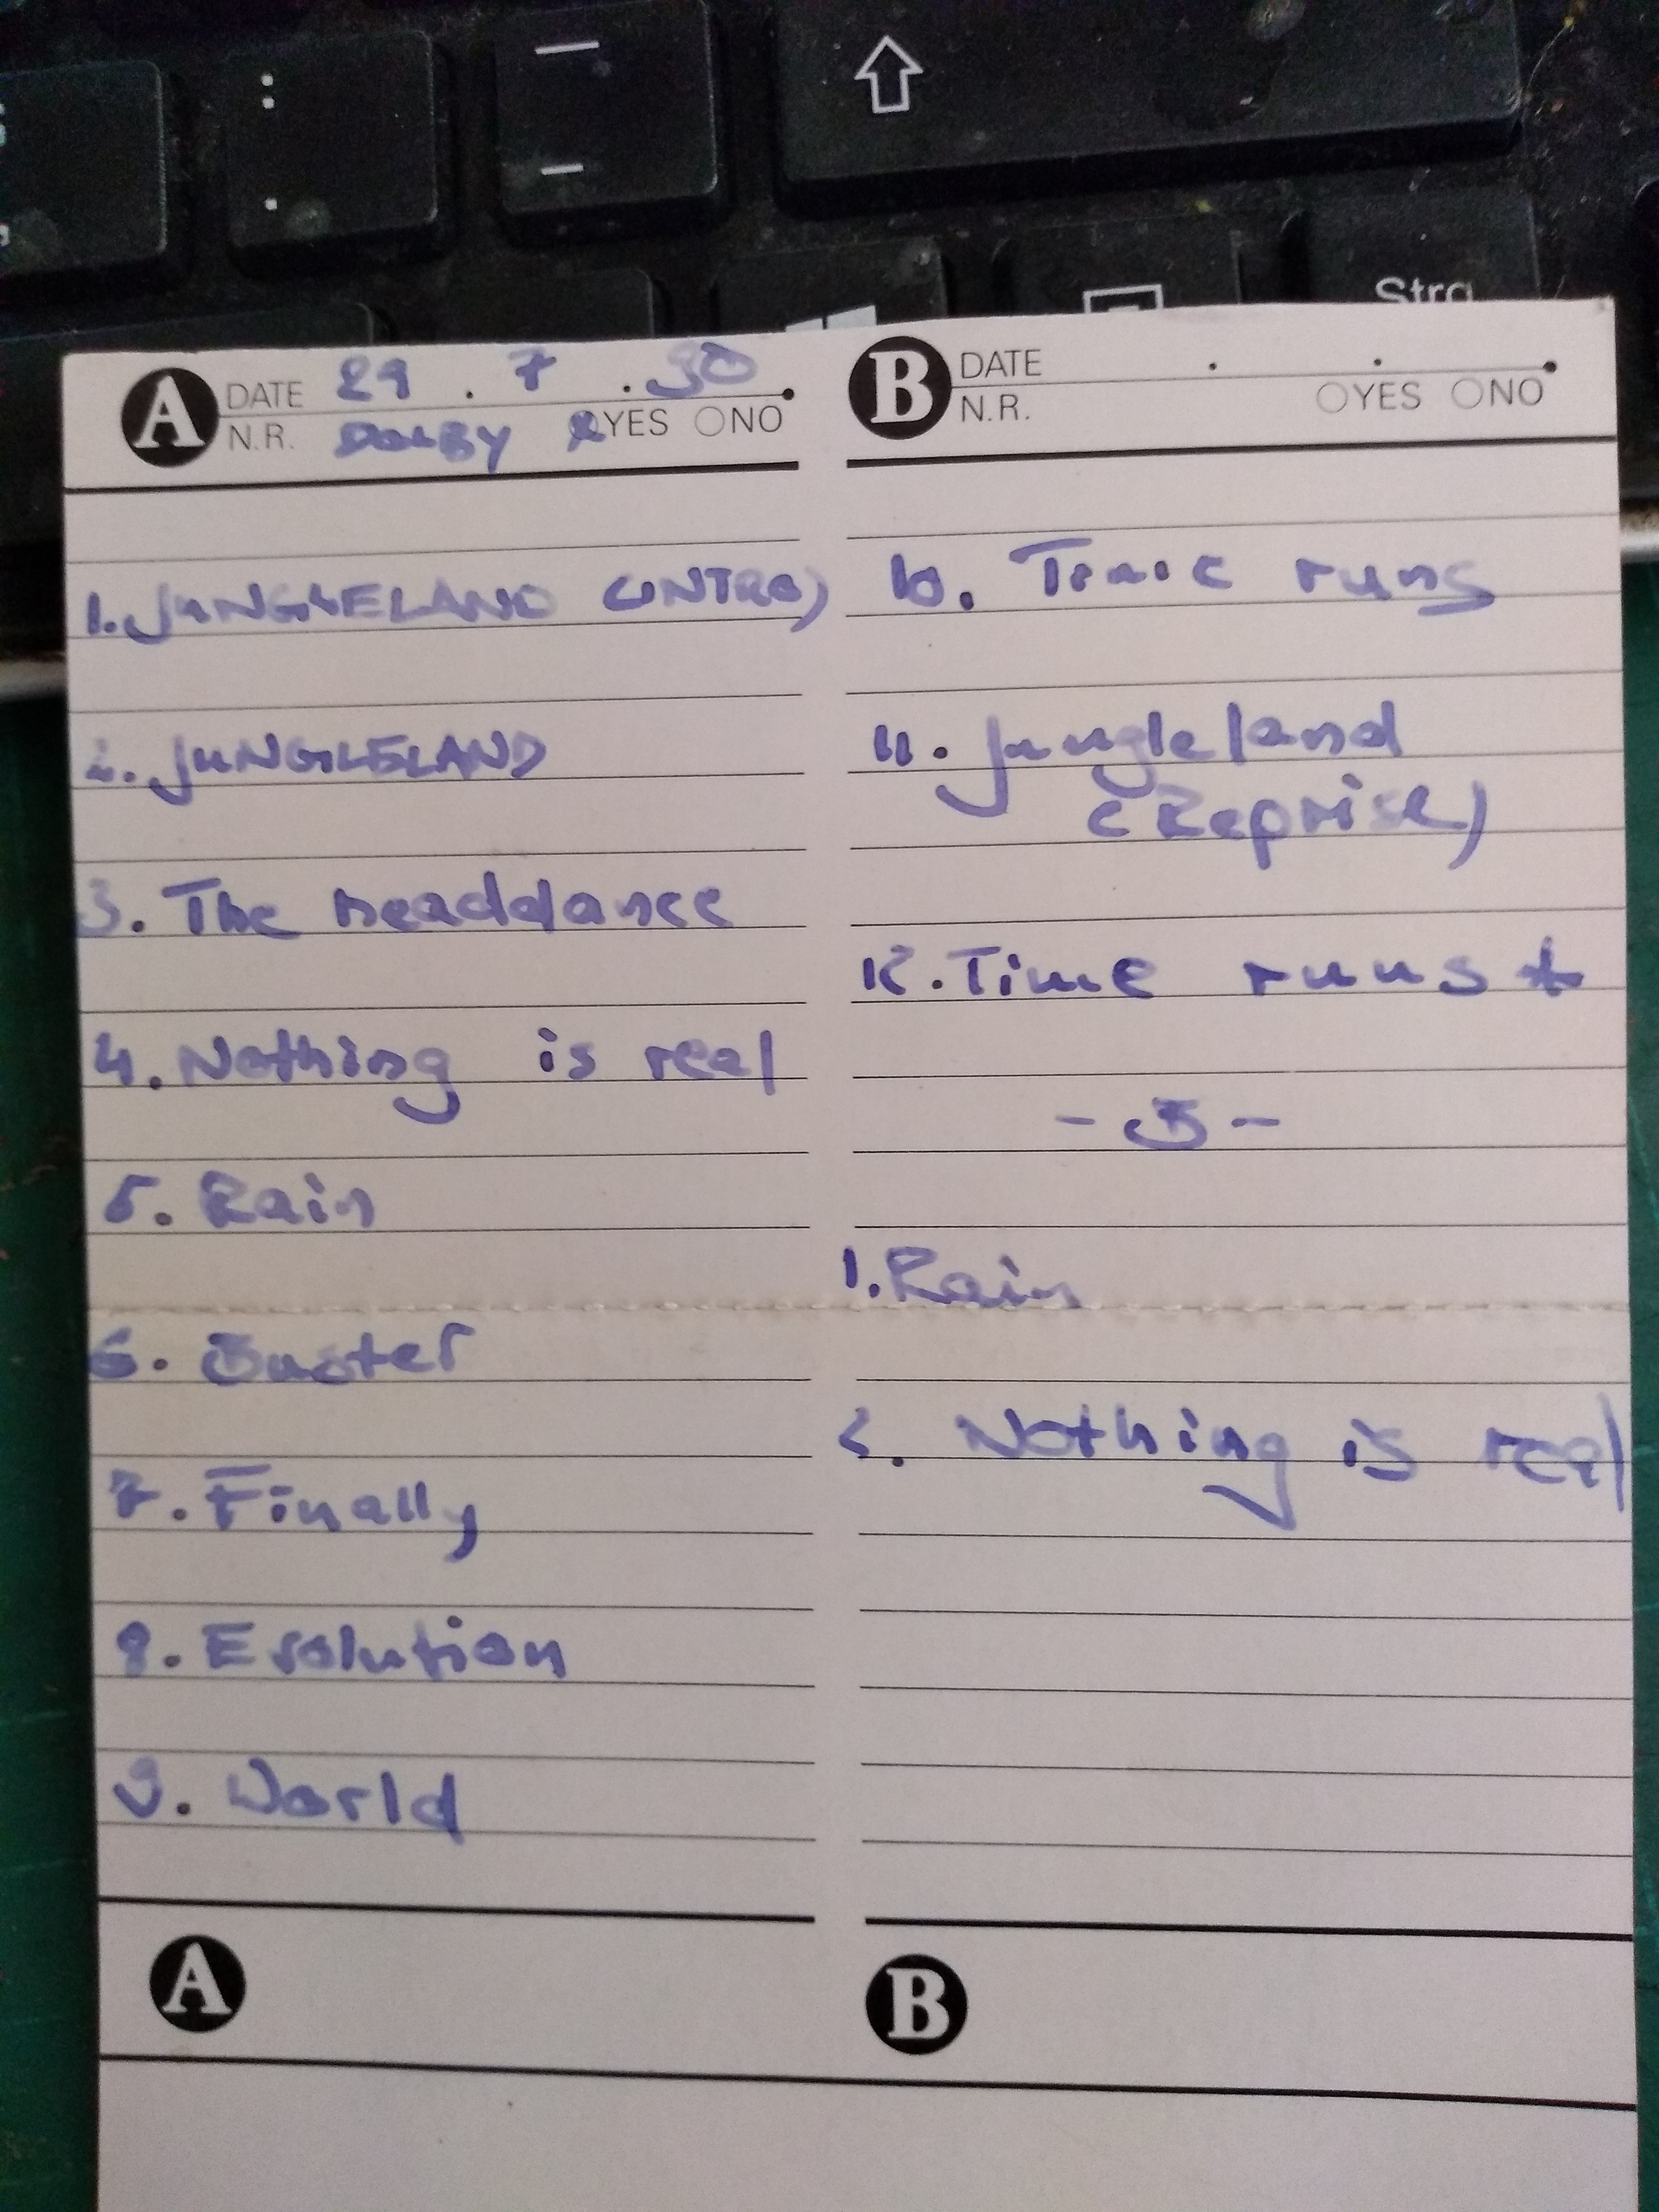 Strg
A DATE 29 . 7 . 90
N.R. DOLBY YES NO
1. JUNGLELAND (INTRO)
2. JUNGLELAND
3. The
4. Nothing is real
5. Rain
6.
7. Finally
8. Evolution
9. World
A
B DATE . .
N.R. YES NO
10. Time runs
11. Jungleland
(Reprise)
12. Time runs *
- B -
1. Rain
2. Nothing is real
B